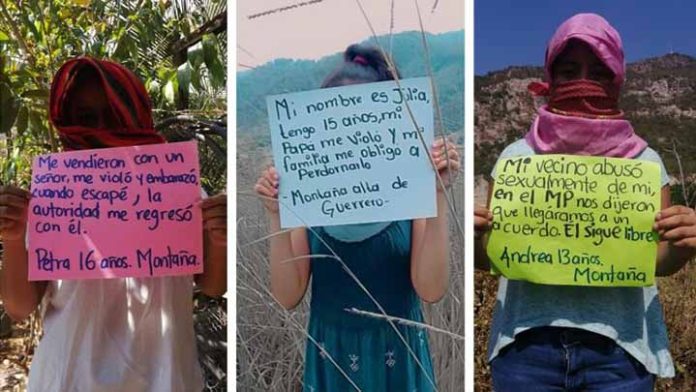 Me vendieron con un
señor, me violó y embarazó,
cuando escapé, la
autoridad me regresó
con él.
Petra 16 años. Montaña.
Mi nombre es Julia,
tengo 15 años, mi
Papá me Violó y mi
familia me obligo a
Perdonarlo
- Montaña alta de
Guerrero -
Mi vecino abusó
sexualmente de mi,
en el MP nos dijeron
que llegaramos a un
acuerdo. El sigue libre
Andrea 13 años.
Montaña